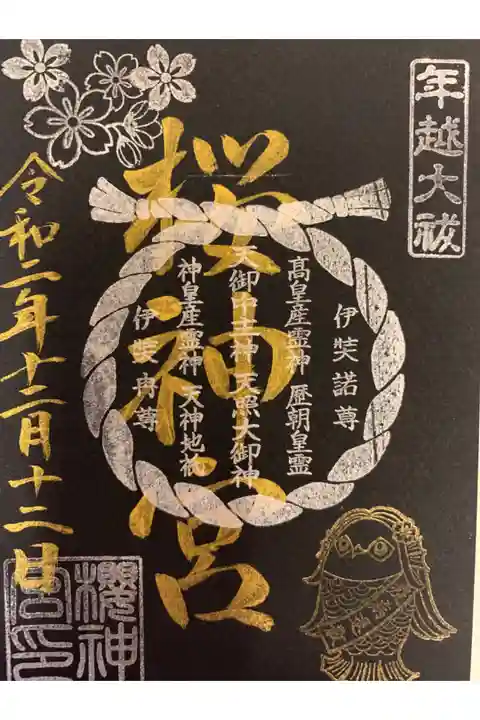 年越大祓
伊弉諾尊
高皇産霊神 歴朝皇霊
天御中主神 天照大御神
神皇産霊神 天神地祇
伊弉冉尊
桜神宮
令和二年十二月十二日
櫻神
宮印